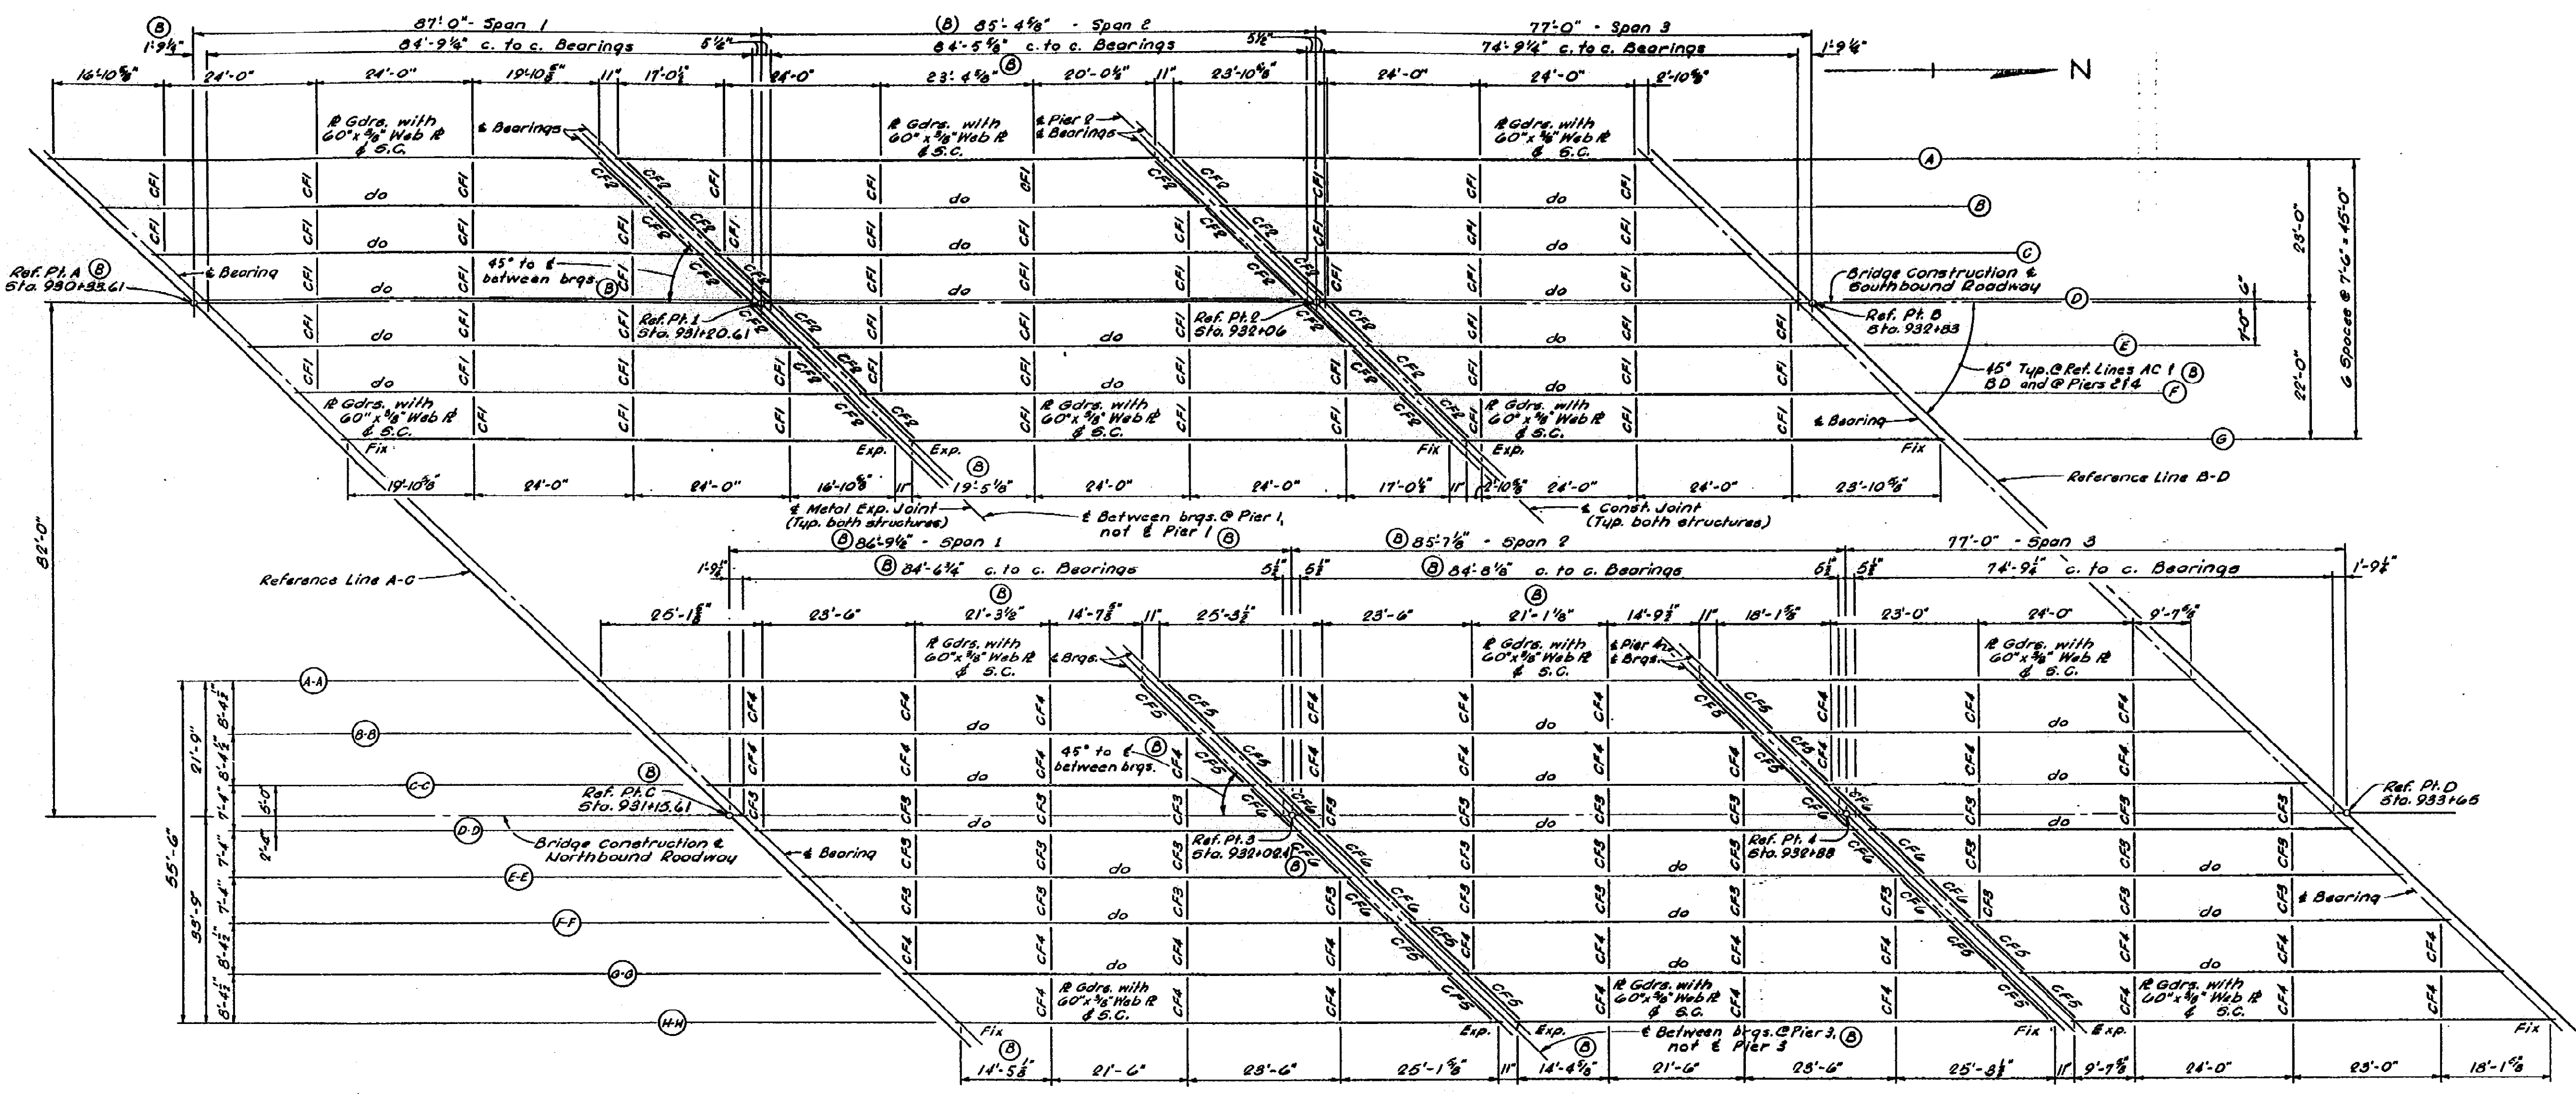 87'-0" - Span 1
(B) 85'-4 5/8" - Span 2
77'-0" - Span 3
B
1'-9¼"
84'-9¼" c. to c. Bearings
5½"
84'-5 5/8" c. to c. Bearings
B
5½"
74'-9¼" c. to c. Bearings
1'-9¼"
16'-10 5/8"
24'-0"
24'-0"
19'-10 5/8"
11"
17'-0½"
24'-0"
23'-4 5/8"
20'-0½"
11"
23'-10 5/8"
24'-0"
24'-0"
2'-10 5/8"
N
℄ Bearings
℄ Pier 2
℄ Bearings
℞ Gdrs. with
60" x 3/8" Web ℞
& S.C.
℞ Gdrs. with
60" x 3/8" Web ℞
& S.C.
℞ Gdrs. with
60" x 3/8" Web ℞
& S.C.
A
B
C
D
E
F
G
CF1
CF2
do
Ref. Pt. A B
Sta. 930+33.61
℄ Bearing
45° to ℄
between brgs. B
Ref. Pt. 1
Sta. 931+20.61
Ref. Pt. 2
Sta. 932+06
Bridge Construction ℄
Southbound Roadway
Ref. Pt. B
Sta. 932+83
45° Typ. @ Ref. Lines AC & B
BD and @ Piers 2 & 4
℄ Bearing
23'-0"
22'-0"
6"
7'-0"
6 Spaces @ 7'-6" = 45'-0"
℞ Gdrs. with
60" x 3/8" Web ℞
& S.C.
℞ Gdrs. with
60" x 3/8" Web ℞
& S.C.
℞ Gdrs. with
60" x 3/8" Web ℞
& S.C.
Fix
Exp.
Exp.
Fix
Exp.
Fix
19'-10 5/8"
24'-0"
24'-0"
16'-10 5/8"
11"
B
19'-5 1/8"
24'-0"
24'-0"
17'-0½"
11"
2'-10 5/8"
24'-0"
24'-0"
23'-10 5/8"
Reference Line B-D
℄ Metal Exp. Joint
(Typ. both structures)
℄ Between brgs. @ Pier 1,
not ℄ Pier 1 B
℄ Const. Joint
(Typ. both structures)
82'-0"
Reference Line A-C
B 86'-9½" - Span 1
B 85'-7 1/8" - Span 2
77'-0" - Span 3
1'-9¼"
B 84'-6¾" c. to c. Bearings
5½"
5½"
B 84'-8 1/8" c. to c. Bearings
5½"
5½"
74'-9¼" c. to c. Bearings
1'-9¼"
25'-1 5/8"
23'-6"
B
21'-3½"
14'-7 5/8"
11"
25'-3½"
23'-6"
B
21'-1 1/8"
14'-9½"
11"
18'-1 5/8"
23'-0"
24'-0"
9'-7 5/8"
℞ Gdrs. with
60" x 3/8" Web ℞
& S.C.
℄ Brgs.
℞ Gdrs. with
60" x 3/8" Web ℞
& S.C.
℄ Pier 4
℄ Brgs.
℞ Gdrs. with
60" x 3/8" Web ℞
& S.C.
A-A
B-B
C-C
D-D
E-E
F-F
G-G
H-H
CF4
CF5
CF3
CF6
do
45° to ℄ B
between brgs.
B
Ref. Pt. C
Sta. 931+15.61
Bridge Construction ℄
Northbound Roadway
℄ Bearing
Ref. Pt. 3
Sta. 932+02.41
B
Ref. Pt. 4
Sta. 932+88
Ref. Pt. D
Sta. 933+65
℄ Bearing
55'-6"
21'-9"
33'-9"
8'-4½"
8'-4½"
7'-4"
7'-4"
7'-4"
8'-4½"
8'-4½"
5'-0"
2'-4"
℞ Gdrs. with
60" x 3/8" Web ℞
& S.C.
℞ Gdrs. with
60" x 3/8" Web ℞
& S.C.
℞ Gdrs. with
60" x 3/8" Web ℞
& S.C.
Fix
Exp.
Exp.
Fix
Exp.
Fix
℄ Between brgs. @ Pier 3, B
not ℄ Pier 3
B
14'-5 1/8"
21'-6"
23'-6"
25'-1 5/8"
11"
B
14'-4 5/8"
21'-6"
23'-6"
25'-3½"
11"
9'-7 5/8"
24'-0"
23'-0"
18'-1 5/8"